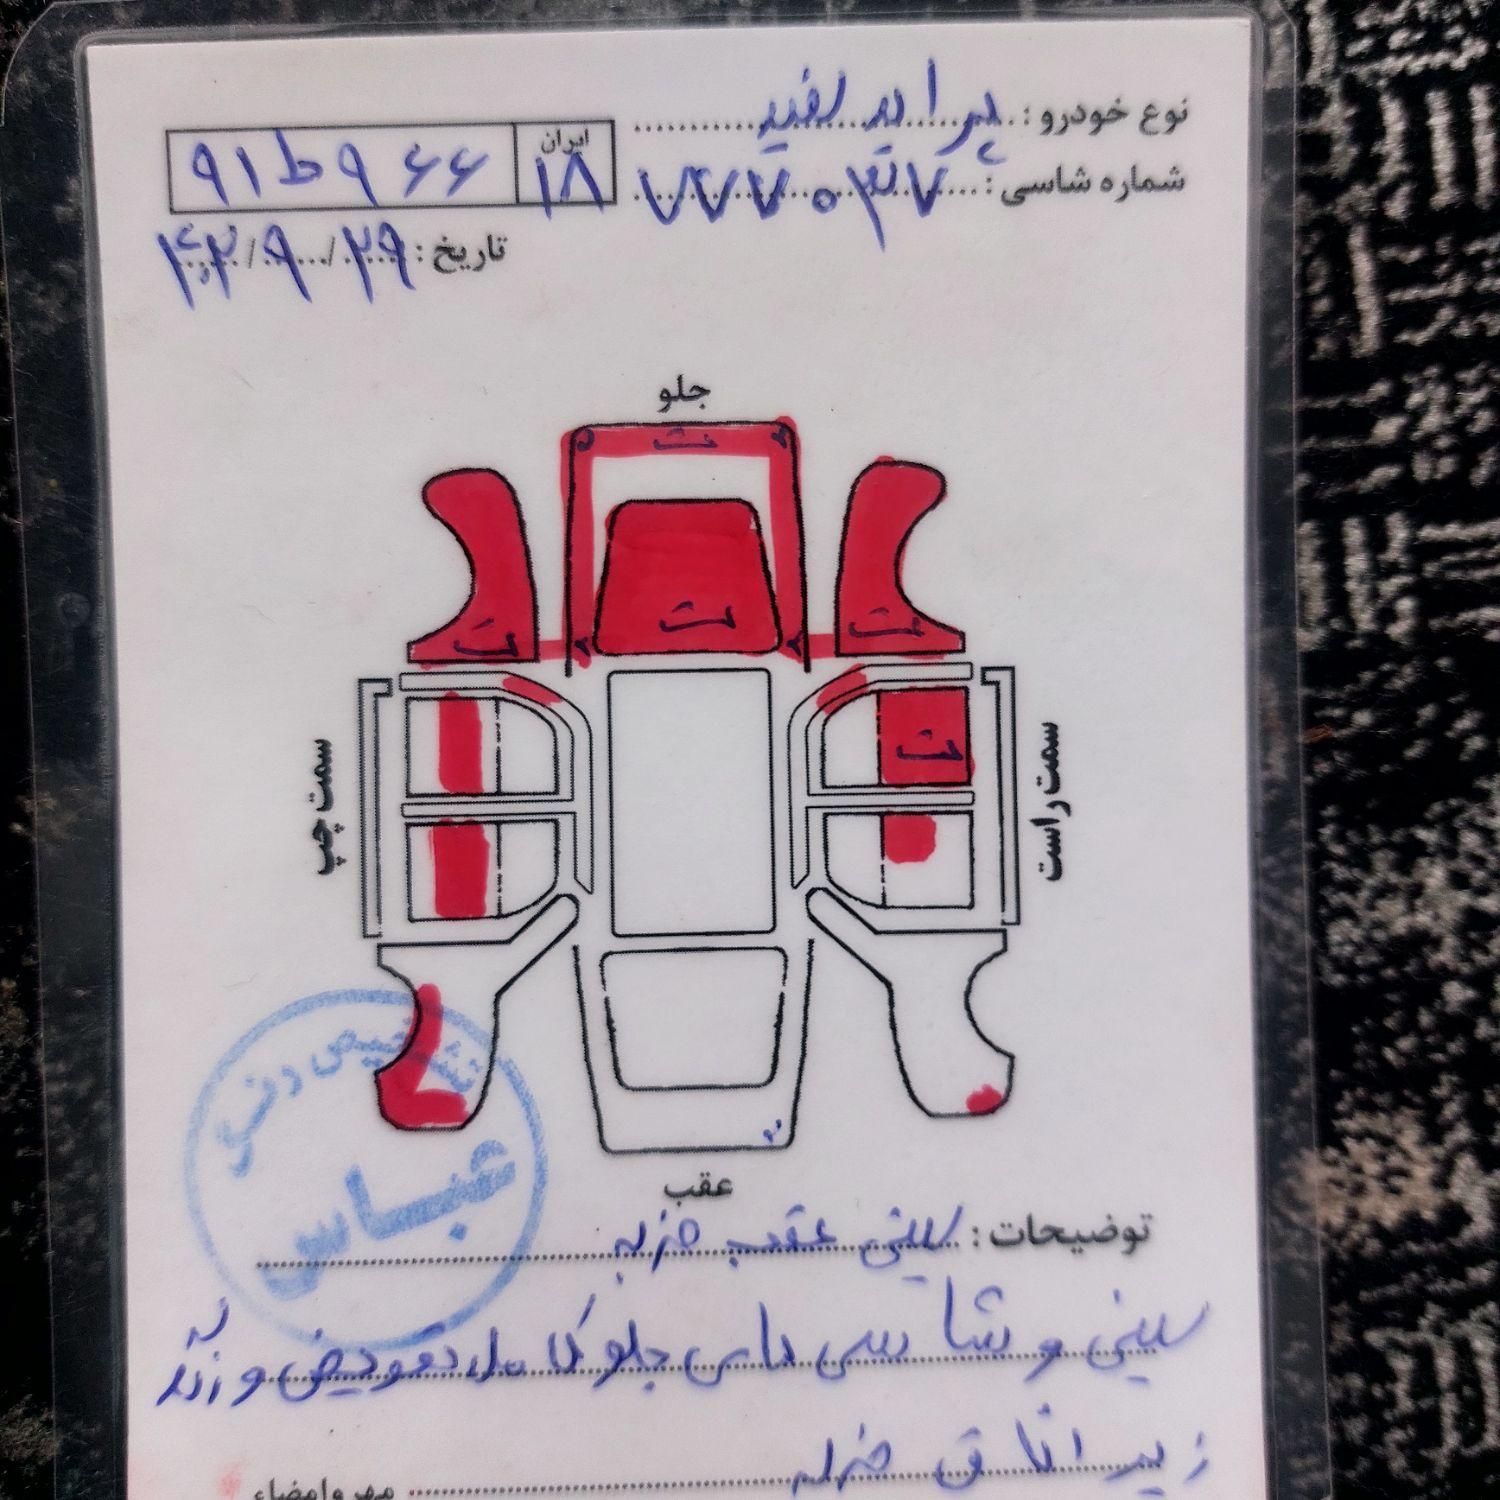 نوع خودرو : پراید سفید
شماره شاسی :
ایران
۱۸
۹۱ ط ۹۶۶
تاریخ : ۲۹/۹/۴۰۲
جلو
ت
ت
ت
ت
ت
سمت چپ
سمت راست
عقب
تشخیص رنگ
عباس
توضیحات : سینی عقب ضربه
سینی و شاسی های جلو کامل تعویض و رنگ
زیر اتاق ضربه
مهر و امضاء